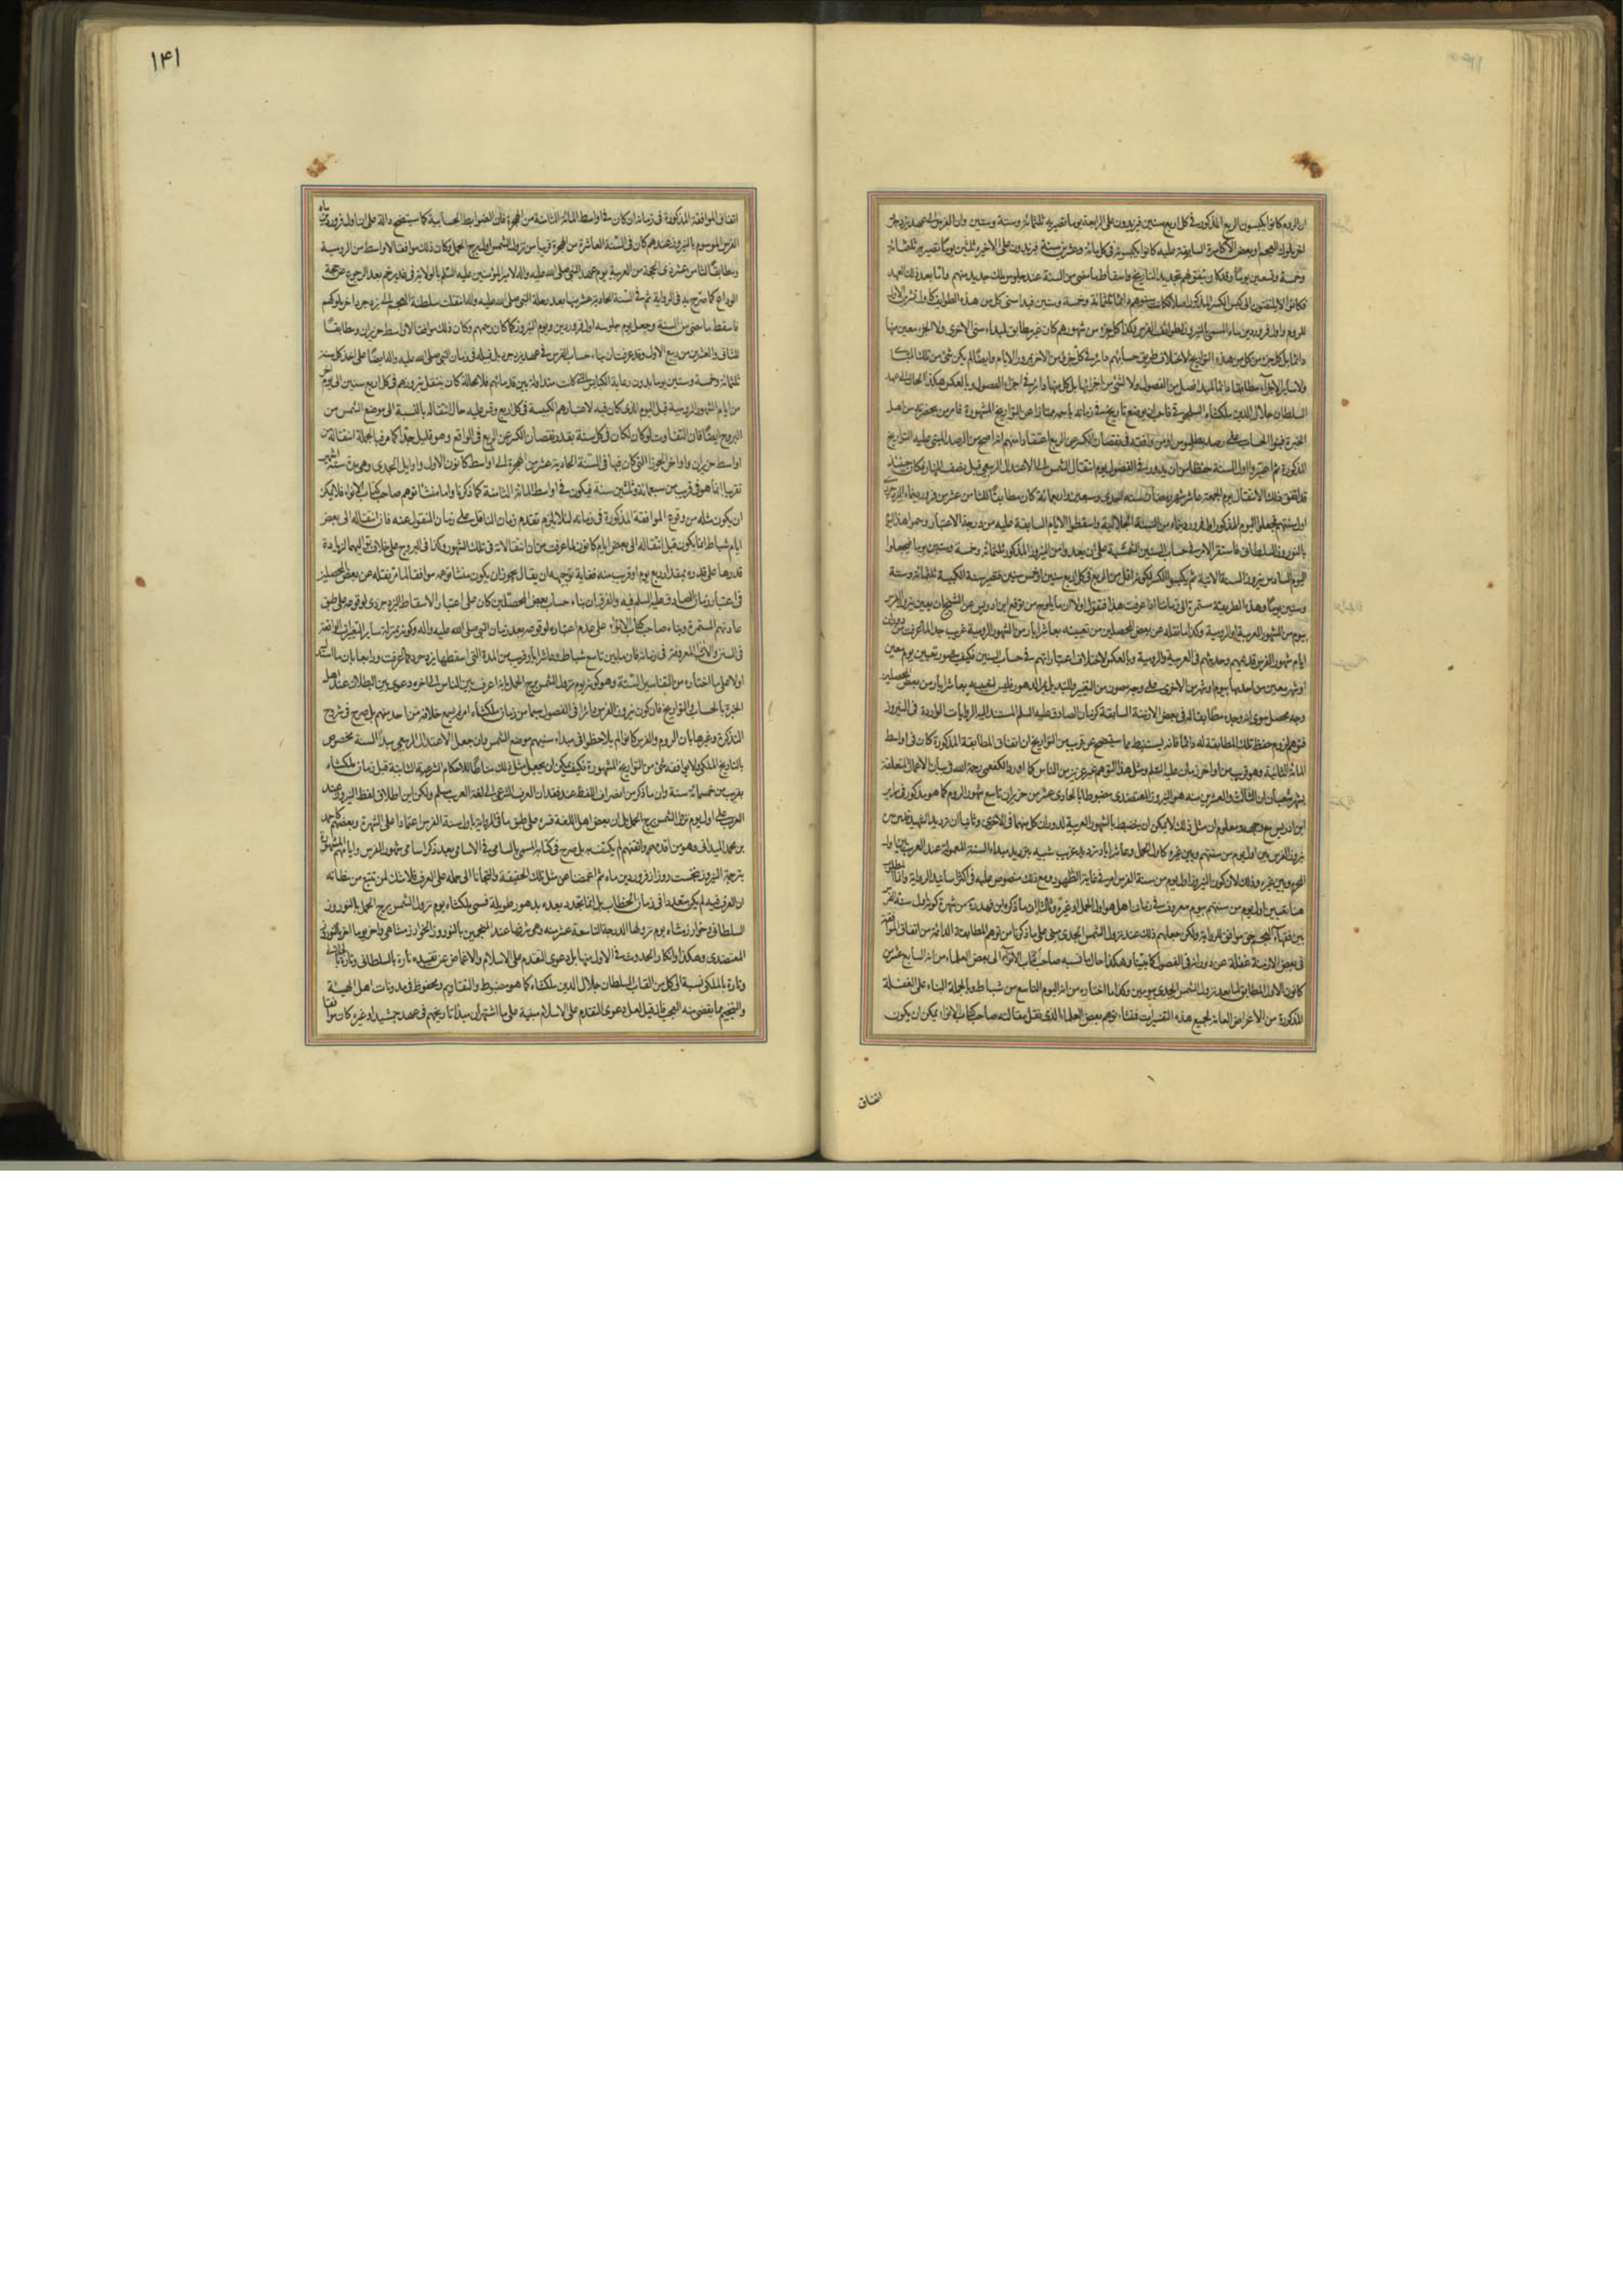 ۱۴۱
ان الروم كانوا يكبسون الربع المذكور في كل اربع سنين فيزيدون على الرابعة يوما فتصير به ثلثمائة وستة وستين وان الفرس الى عهد يزدجرد
اخر ملوك العجم وبعض الاكاسرة السابقة عليه كانوا يكبسونه في كل مائة وعشرين سنة فيزيدون على الاخيرة ثلثين يوما فتصير به ثلثمائة
وخمسة وتسعين يوما وقد كان يتفق لهم تجديد التاريخ واسقاط ما مضى من السنة عند جلوس ملك جديد منهم واما بعد ذلك العهد
فكانوا لا يلتفتون الى كبس الكسر المذكور اصلا فكان سنوهم دائما ثلثمائة وخمسة وستين فمبدا سنى كل من هذه الطوائف كاول تشرين الاول
للروم واول فروردين ماه المسمى بالنيروز لطوائف الفرس وكذا كل جزء من شهورهم كان غير مطابق لمبداء سنى الاخرى ولا لجزء معين منها
دائما بل كل جزء من كل من هذه التواريخ لاختلاف طريق حسابهم دائر في كل جزء من الاخر بمرور الايام وايضا لم يكن شئ من تلك المبادى
ولا سائر الاجزاء مطابقا دائما لمبدا فصل من الفصول ولا لشئ من اجزائها بل كل منها دائر في اجزاء الفصول وبالعكس هكذا الحال الى عهد
السلطان جلال الدين ملكشاه السلجوقى فاحب ان يوضع تاريخ في زمانه باسمه ممتازا عن التواريخ المشهورة فامر من بحضرته من اهل
الخبرة فبنوا الحساب على رصد بطلميوس او من وافقه في نقصان الكسر عن الربع اعتقادا منهم انه اصح من الرصد المبنى عليه التواريخ
المذكورة ثم اعتبروا اول السنة حفظا من ان يدور في الفصول يوم انتقال الشمس الى الاعتدال الربيعى قبل نصف النهار وكان حينئذ
قد اتفق ذلك الانتقال يوم الجمعة عاشر شهر رمضان سنة احدى وسبعين واربعمائة كان مطابقا للثامن عشر من فروردين ماه
اول سنتهم فجعلوا اليوم المذكور اول فروردين ماه من السنة الجلالية واسقطوا الايام السابقة عليه من درجة الاعتبار وسموا هذا اليوم
بالنوروز السلطانى فاستقر الامر في حساب السنين الشمسية على ان يعدوا من النيروز المذكور ثلثمائة وخمسة وستين يوما فيجعلوا
اليوم السادس نيروز السنة الآتية ثم يكبسوا الكسر لكونه اقل من الربع في كل اربع سنين او خمس سنين فتصير سنة الكبيسة ثلثمائة وستة
وستين يوما وهذه الطريقة مستمرة الى زماننا اذا عرفت هذا فنقول اولا ان ما يلوح من توقع ابن ادريس عن الشيخ ان يعين نيروز الفرس
بيوم من الشهور العربية او الرومية وكذا ما نقله عن بعض المحصلين من تعيينه بعاشر ايار من الشهور الرومية غريب جدا لما عرفت من
ايام شهور الفرس قديمهم وحديثهم في العربية والرومية وبالعكس لاختلاف اعتباراتهم في حساب السنين فكيف يتصور تعيين يوم معين
او شهر معين من احدها بيوم او شهر من الاخرى على وجه مصون من التغيير والتبديل بمر الدهور فليس لتعيينه بعاشر ايار من بعض المحصلين
وجه محصل سوى انه وجد مطابقا له في بعض الازمنة السابقة كزمان الصادق عليه السلم المستند اليه الروايات الواردة في النيروز
فتوهم لزوم حفظ تلك المطابقة له دائما فانه يستنبط مما ستتضح عن قريب من التواريخ ان اتفاق المطابقة المذكورة كان في اواسط
المائة الثانية وهو قريب من اواخر زمانه عليه السلم ومثل هذا التوهم غير عزيز من الناس كما اورد الكفعمى رحمه الله في بيان الاعمال المتعلقة
بشهر شعبان ان الثالث والعشرين منه هو النيروز المعتضدى مضبوطا بالحادى عشر من حزيران تاسع شهور الروم كما هو مذكور في سرائر
ابن ادريس
نيروز الفرس بين اول يوم من سنتهم وبين غيره كاول الحمل وعاشر ايار ترديد غريب شبيه بترديد مبداء السنة المعمولة عند العرب بين اول
المحرم وبين غيره وذلك لان كون النيروز اول يوم من سنة الفرس امر في غاية الظهور ومع ذلك منصوص عليه في اكثر اسانيد الرواية واما
هنا تعيين اول يوم من سنتهم بيوم معروف في زماننا اهل هو اول الحمل او غيره وثالثا ان ما ذكره ابن فهد ره من شهرة كونه اول سنة الفرس
بين فقهاء العجم حق موافق للرواية ولكن جعلهم ذلك عند نزول الشمس الجدى مبنى على ما ذكرنا من توهم المطابقة الدائمة من اتفاق الموافقة
في بعض الازمنة غفلة عن دورانه في الفصول كما بيناه وهكذا حال ما نسبه صاحب كتاب الانواء الى بعض العلماء من انه السابع عشر من
كانون الاول المطابق لما بعد نزول الشمس الجدى بيومين وكذا ما اختاره من انه اليوم التاسع من شباط وبالجملة البناء على الغفلة
المذكورة من الاغراض العامة لجميع هذه التفسيرات فمنشاء توهم بعض العلماء الذى نقل مقالته صاحب كتاب الانواء يمكن ان يكون
اتفاق
اتفاق الموافقة المذكورة في زمانه ان كان في اواسط المائة الثامنة من الهجرة فان الضوابط الحسابية كما سيتضح دالة على ان اول فروردين ماه
الفرس الموسوم بالنيروز عندهم كان في السنة العاشرة من الهجرة قريبا من نزول الشمس اول برج الحمل وكان ذلك موافقا لاواسط من الرومية
ومطابقا للثامن عشر من ذى الحجة من العربية يوم عهد النبي صلى الله عليه واله لامير المؤمنين عليه السلم بالولاية في غدير خم بعد الرجوع عن حجة
الوداع كما صرح به في الرواية ثم في السنة الحادية عشر منها بعد رحلة النبي صلى الله عليه واله انتقلت سلطنة العجم الى يزدجرد اخر ملوكهم
فاسقط ما مضى من السنة وجعل يوم جلوسه اول فروردين ويوم النيروز كما كان رسمهم وكان ذلك موافقا لاواسط حزيران ومطابقا
للثانى والعشرين من ربيع الاول وقد عرفت ان بناء حساب الفرس في عهد يزدجرد بل قبيله في زمان النبي صلى الله عليه واله ايضا على اخذ كل سنة
ثلثمائة وخمسة وستين يوما بدون رعاية الكبائس التى كانت متداولة بين قدمائهم فلا محالة كان ينتقل نيروزهم في كل اربع سنين الى يوم اخر
من ايام الشهور الرومية قبل اليوم الذى كان فيه لاعتبارهم الكبيسة في كل اربع وقس عليه حال انتقاله بالنسبة الى موضع الشمس من
البروج ايضا فان التفاوت لو كان لكان في كل سنة بقدر نقصان الكسر عن الربع في الواقع وهو قليل جدا كما مر فبالجملة انتقاله من
اواسط حزيران واواخر الجوزا التى كان فيها في السنة الحادية عشر من الهجرة الى اواسط كانون الاول واوايل الجدى وهى مدة ستة اشهر
تقريبا انما هو في قريب من سبعمائة وثلثين سنة فيكون في اواسط المائة الثامنة كما ذكرنا واما منشا توهم صاحب كتاب الانواء فلا يمكن
ان يكون مثله من وقوع الموافقة المذكورة في زمانه لئلا يلزم تقدم زمان الناقل على زمان المنقول عنه فان انتقاله الى بعض
ايام شباط انما يكون قبل انتقاله الى بعض ايام كانون لما عرفت من ان انتقالاته في تلك الشهور وكذا في البروج على خلاف تواليهما لزيادة
قدرها على قدره بمقدار ربع يوم او قريب منه فغاية توجيهه ان يقال يجوز ان يكون منشا توهمه موافقا لما مر نقله عن بعض المحصلين
في اعتبار زمان الصادق عليه السلم فيه والفرق ان بناء حساب بعض المحصلين كان على اعتبار الاسقاط اليزدجردى لوقوعه على طبق
عادتهم المستمرة وبناء صاحب كتاب الانواء على عدم اعتباره لوقوعه بعد زمان النبي صلى الله عليه واله وكونه بمنزلة سائر التغيرات الواقعة
في السنن والآثار المعروفة في زمانه فان ما بين تاسع شباط وعاشر ايار قريب من المدة التى اسقطها يزدجرد كما عرفت ورابعا بان ما استدل
اولا على ما اختاره من التفاسير الستة وهو كونه يوم نزول الشمس برج الحمل بانه اعرف بين الناس الى اخره دعوى بين البطلان عند اهل
الخبرة بالحساب والتواريخ فان كون نيروز الفرس دائرا في الفصول سيما من زمان ملكشاه امر لم يسمع خلافه من احد منهم بل صرح في شروح
التذكرة وغيرها بان الروم والفرس كانوا لم يلاحظوا في مبداء سنيهم موضع الشمس وان جعل الاعتدال الربيعى مبدا السنة مخصوص
بالتاريخ الملكى ولا يوافقه شئ من التواريخ المشهورة فكيف يمكن ان يجعل مثل ذلك مناطا للاحكام الشرعية الثابتة قبل زمان ملكشاه
بقريب من خمسمائة سنة وان ما ذكر من انصراف اللفظ عند فقدان العرف الشرعى الى لغة العرب مسلم ولكن اين اطلاق لفظ النيروز عند
العرب على اول يوم نزول الشمس برج الحمل بل ان بعض اهل اللغة فسره على طبق ما في الرواية باول سنة الفرس اعتمادا على الشهرة وبعضهم كاحمد
بن محمد الميدانى وهو من اقدمهم واتقنهم لم يكتف به بل صرح في كتابه المسمى بالسامى في الاسامى بعد ذكر اسامى شهور الفرس وايامهم المشهورة
بترجمة النيروز بنخست روز از فروردين ماه ثم اغمضنا عن مثل تلك الحقيقة والتجأنا الى حمله على العرف فلا شك لمن تتبع من مظانه
ان العرف فيه لم يكن متعددا في زمان الخطاب بل انما تجدد بعده بدهور طويلة فسمى ملكشاه يوم نزول الشمس برج الحمل بالنوروز
السلطانى وخوارزمشاه يوم نزولها الدرجة التاسعة عشر منه وهى شرفها عند المنجمين بالنوروز الخوارزمشاهى واخر يوما اخر بالنوروز
المعتضدى وهكذا وانكار الحدوث في الاول منها بل دعوى التقدم على الاسلام والاغماض عن تقييده تارة بالسلطانى وتارة بالجلالى
وتارة بالملكى نسبة الى كل من القاب السلطان جلال الدين ملكشاه كما هو مضبوط في التقاويم ومحفوظ في مدونات اهل الهيئة
والتنجيم مما يقضى منه العجب فان قيل لعل دعوى التقدم على الاسلام مبنية على ما اشتهر ان مبدا تاريخهم في عهد جمشيد او غيره كان موافقا